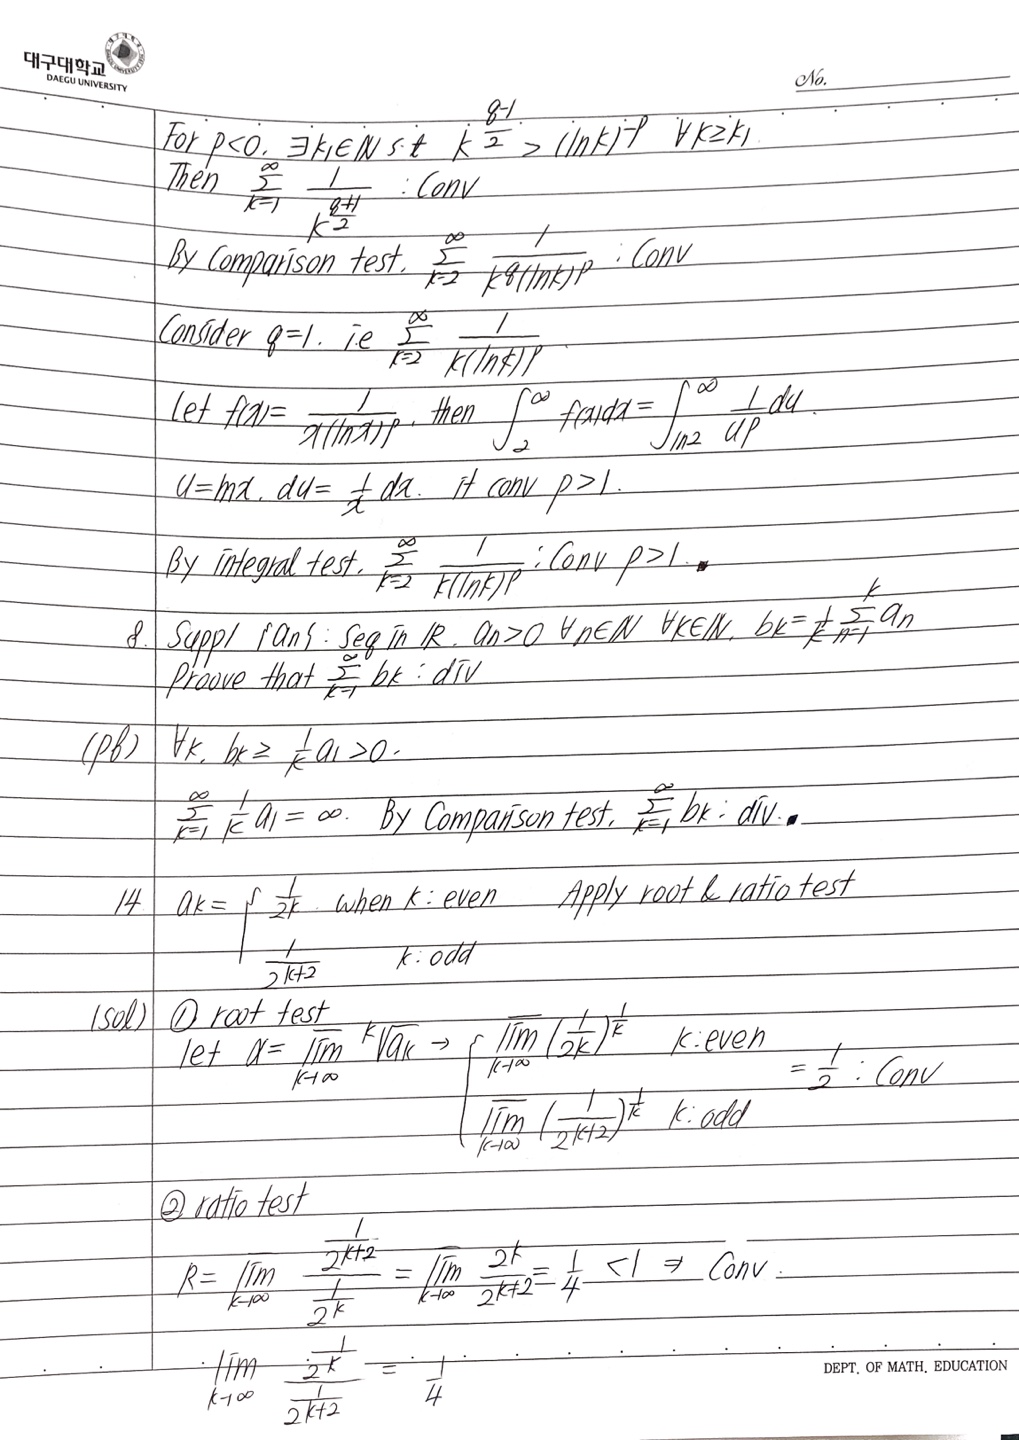 대구대학교
DAEGU UNIVERSITY
No.
For p<0. ∃k₁∈N s.t k^((q-1)/2) > (lnk)^-p ∀k≥k₁.
Then Σ_{k=1}^∞ 1/k^((q+1)/2) : Conv
By Comparison test. Σ_{k=2}^∞ 1/(k^q(lnk)^p) : Conv
Consider q=1. i.e Σ_{k=2}^∞ 1/(k(lnk)^p)
Let f(x)= 1/(x(lnx)^p), then ∫_2^∞ f(x)dx = ∫_{ln2}^∞ 1/u^p du.
u=lnx. du= 1/x dx. it conv p>1.
By integral test. Σ_{k=2}^∞ 1/(k(lnk)^p) : Conv p>1.
8. Suppl {an}: seq in R. an>0 ∀n∈N ∀k∈N. bk= 1/k Σ_{n=1}^k an
Proove that Σ_{k=1}^∞ bk : div
(pf) ∀k. bk ≥ 1/k a₁ >0.
Σ_{k=1}^∞ 1/k a₁ = ∞. By Comparison test. Σ_{k=1}^∞ bk : div.
14. ak = { 1/2^k when k : even Apply root & ratio test
1/2^(k+2) k : odd
(sol) ① root test
let α = lim̅_{k→∞} ᵏ√ak → { lim̅_{k→∞} (1/2^k)^(1/k) k : even = 1/2 : Conv
lim̅_{k→∞} (1/2^(k+2))^(1/k) k : odd
② ratio test
R = lim̅_{k→∞} (1/2^(k+2))/(1/2^k) = lim̅_{k→∞} 2^k/2^(k+2) = 1/4 <1 ⇒ Conv.
lim_{k→∞} (1/2^k)/(1/2^(k+2)) = 1/4
DEPT. OF MATH. EDUCATION